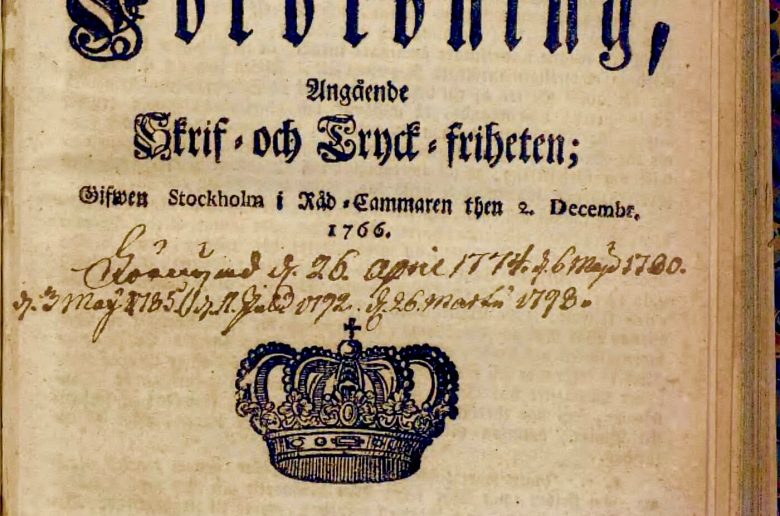 Förordning,
Angående
Skrif-och Tryck-friheten;
Gifwen Stockholm i Råd-Cammaren then 2. Decembr.
1766.
Förnyad d. 26. april 1774. d. 6 Maji 1780.
d. 3 May 1785. d. 11. Julii 1792. d. 26. Martii 1798.